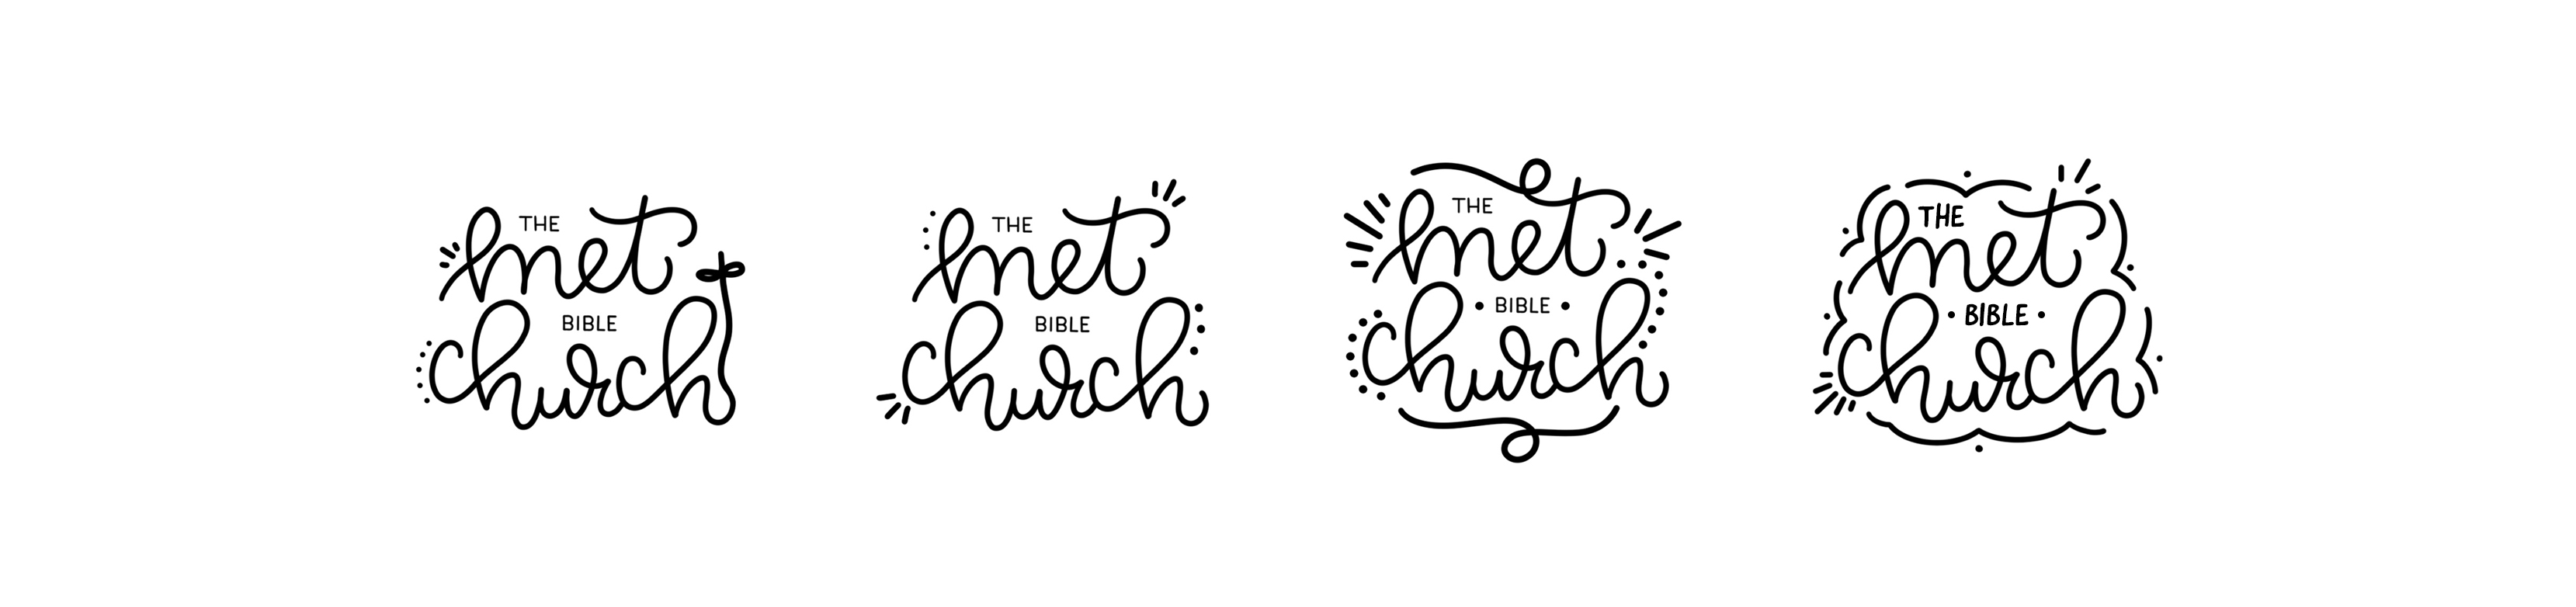 THE
met
BIBLE
church
THE
met
BIBLE
church
THE
met
• BIBLE •
church
THE
met
• BIBLE •
church